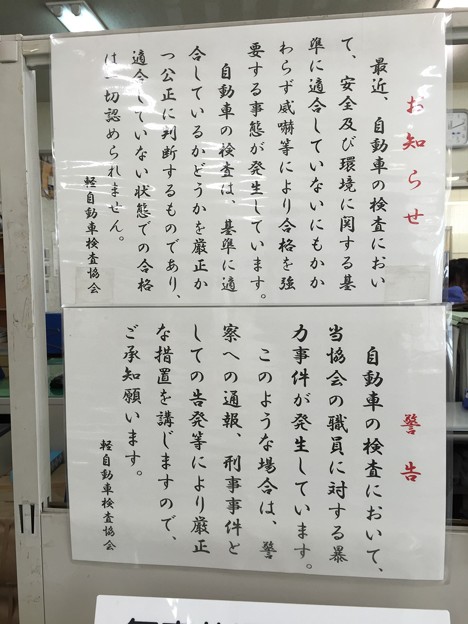 お知らせ
最近、自動車の検査におい
て、安全及び環境に関する基
準に適合していないにもかか
わらず威嚇等により合格を強
要する事態が発生しています。
自動車の検査は、基準に適
合しているかどうかを厳正か
つ公正に判断するものであり、
適合していない状態での合格
は一切認められません。
軽自動車検査協会
警告
自動車の検査において、
当協会の職員に対する暴
力事件が発生しています。
このような場合は、警
察への通報、刑事事件と
しての告発等により厳正
な措置を講じますので、
ご承知願います。
軽自動車検査協会